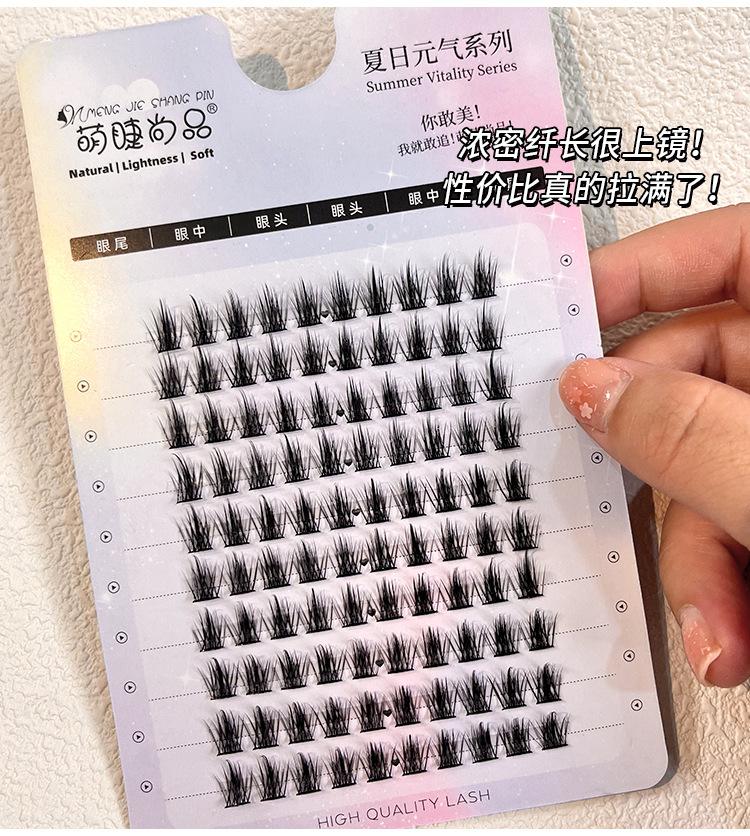 夏日元气系列
Summer Vitality Series
MENG JIE SHANG PIN
萌睫尚品®
Natural | Lightness | Soft
你敢美！
我就敢追！
浓密纤长很上镜！
性价比真的拉满了！
眼尾 | 眼中 | 眼头 | 眼头 | 眼中
HIGH QUALITY LASH